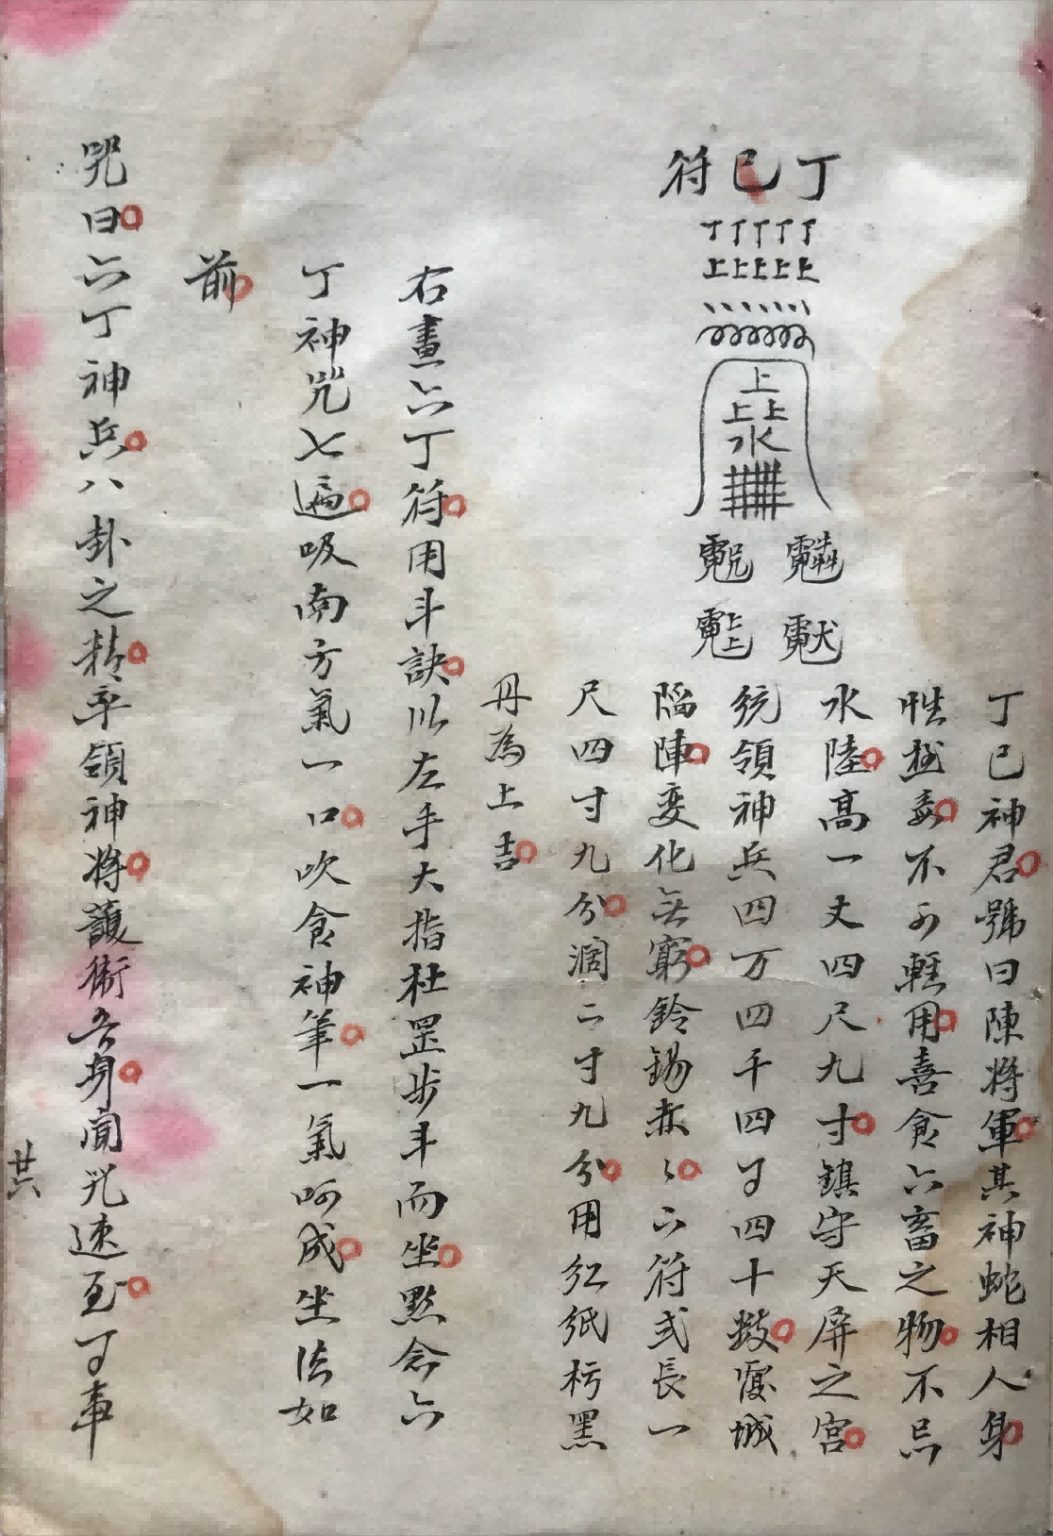 丁巳符
丁丁丁丁丁
上上上上上
上
上上
水
丁巳神君號曰陳將軍其神蛇相人身
性極毒不可輕用喜食六畜之物不忌
水陸高一丈四尺九寸鎮守天屏之宮
統領神兵四万四千四百四十
城
陷陣变化无窮鈴錫赤々六符式長一
尺四寸九分濶二寸九分用紅紙朽黑
丹為上吉
右畫六丁符用斗訣以左手大指柱罡步斗而坐黙念六
丁神咒七遍吸南方氣一口吹食神筆一氣呵成坐法如
前
咒曰六丁神兵八卦之精率領神將護衛吾身聞咒速至丁事
廿六